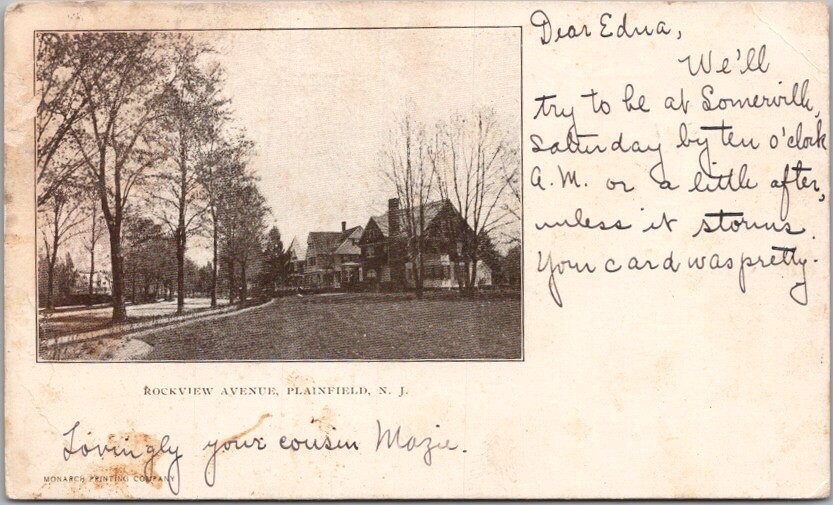 Dear Edna,
We'll
try to be at Somerville,
Saturday by ten o'clock
A.M. or a little after,
unless it storms.
Your card was pretty.
ROCKVIEW AVENUE, PLAINFIELD, N. J.
Lovingly your cousin Mazie.
MONARCH PRINTING COMPANY